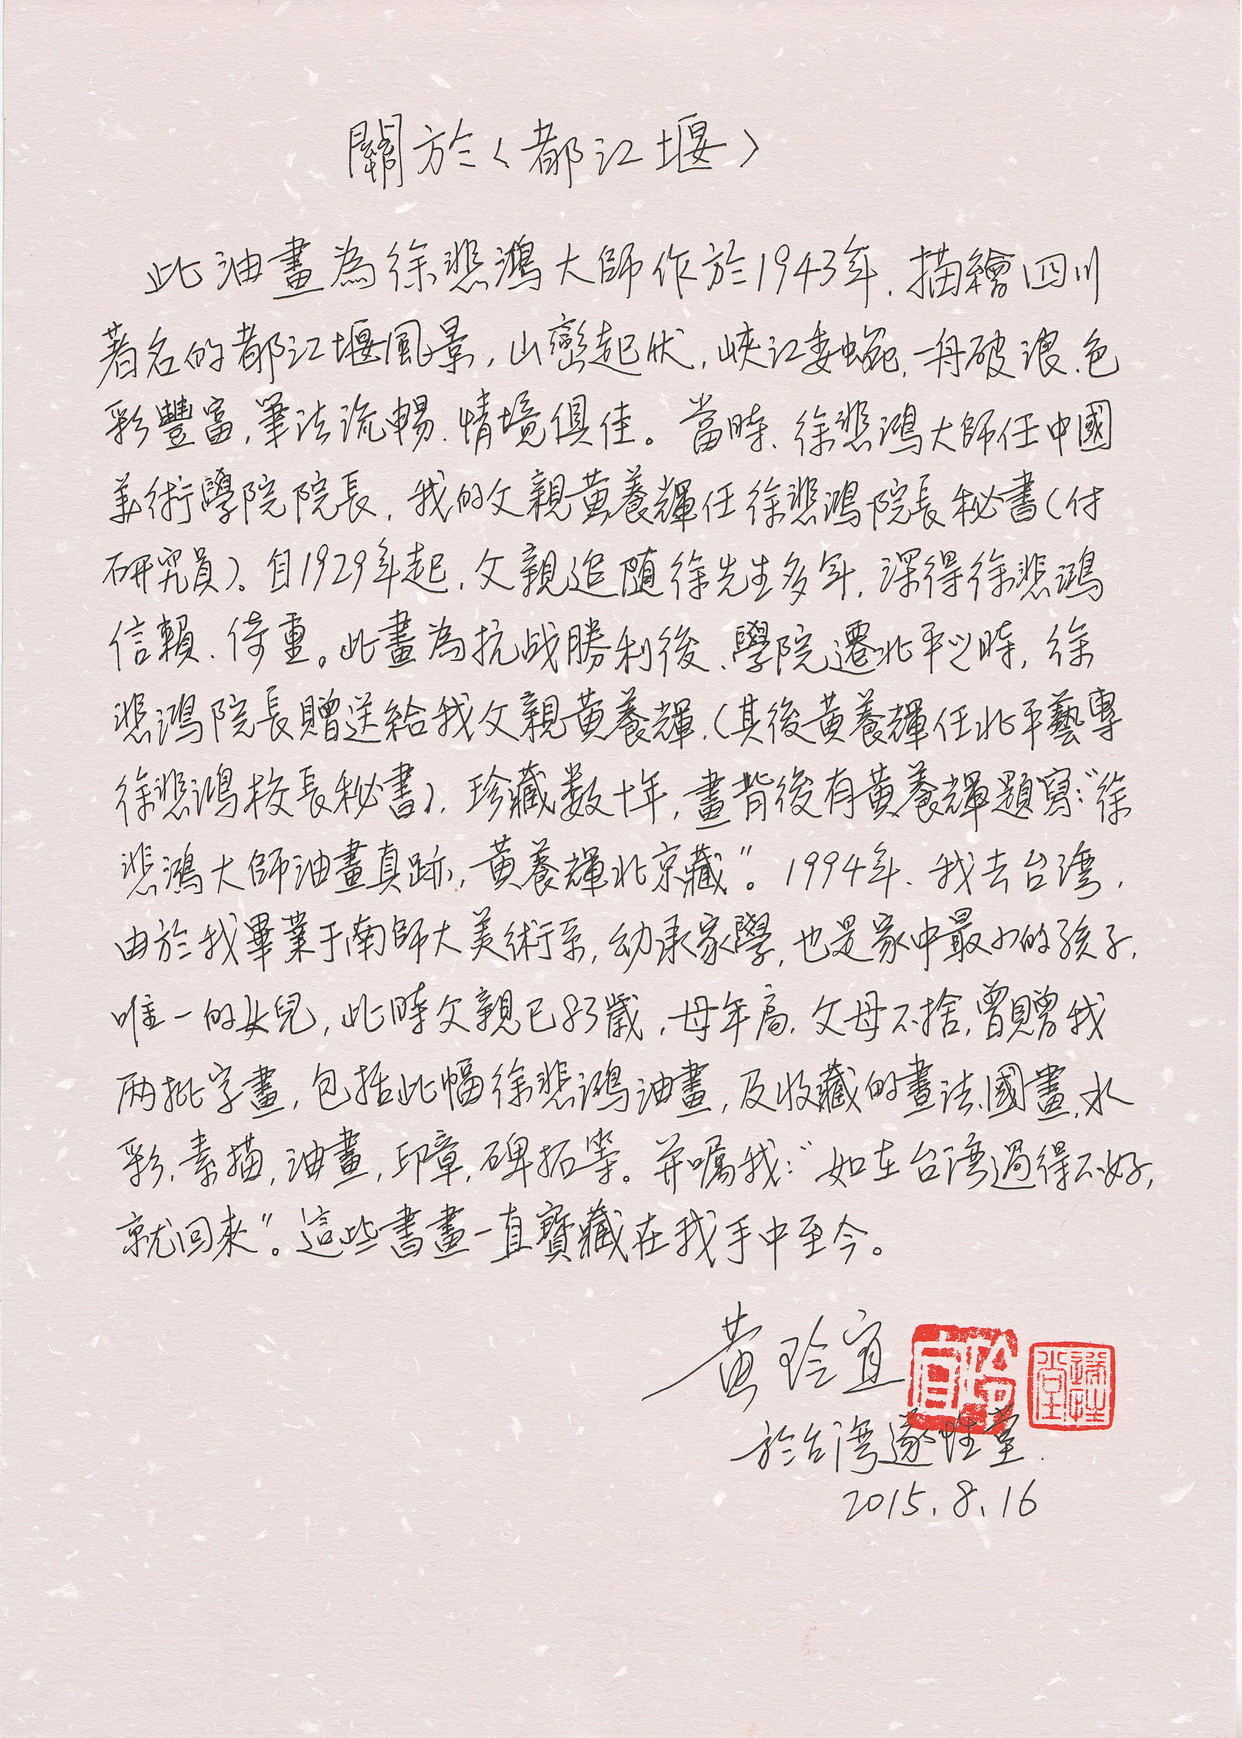 關於〈都江堰〉
此油畫為徐悲鴻大師作於1943年，描繪四川
著名的都江堰風景，山巒起伏，峽江委蜿，一舟破浪，色
彩豐富，筆法流暢，情境俱佳。當時，徐悲鴻大師任中國
美術學院院長，我的父親黃養輝任徐悲鴻院長秘書（付
研究員）。自1929年起，父親追随徐先生多年，深得徐悲鴻
信賴、倚重。此畫為抗战勝利後，學院遷北平之時，徐
悲鴻院長贈送給我父親黃養輝，（其後黃養輝任北平藝專
徐悲鴻校長秘書），珍藏数十年，畫背後有黃養輝題寫：“徐
悲鴻大師油畫真跡，黃養輝北京藏”。1994年，我去台湾，
由於我畢業于南師大美術系，幼承家學，也是家中最小的孩子，
唯一的女兒，此時父親已83歲，母年高，父母不捨，曾贈我
两批字畫，包括此幅徐悲鴻油畫，及收藏的畫法、國畫、水
彩、素描，油畫，印章，碑拓等。并嘱我：“如在台湾過得不好，
就回來”。這些書畫一直寶藏在我手中至今。
黃玲宜
玲宜
遂性堂
於台湾遂性堂.
2015.8.16